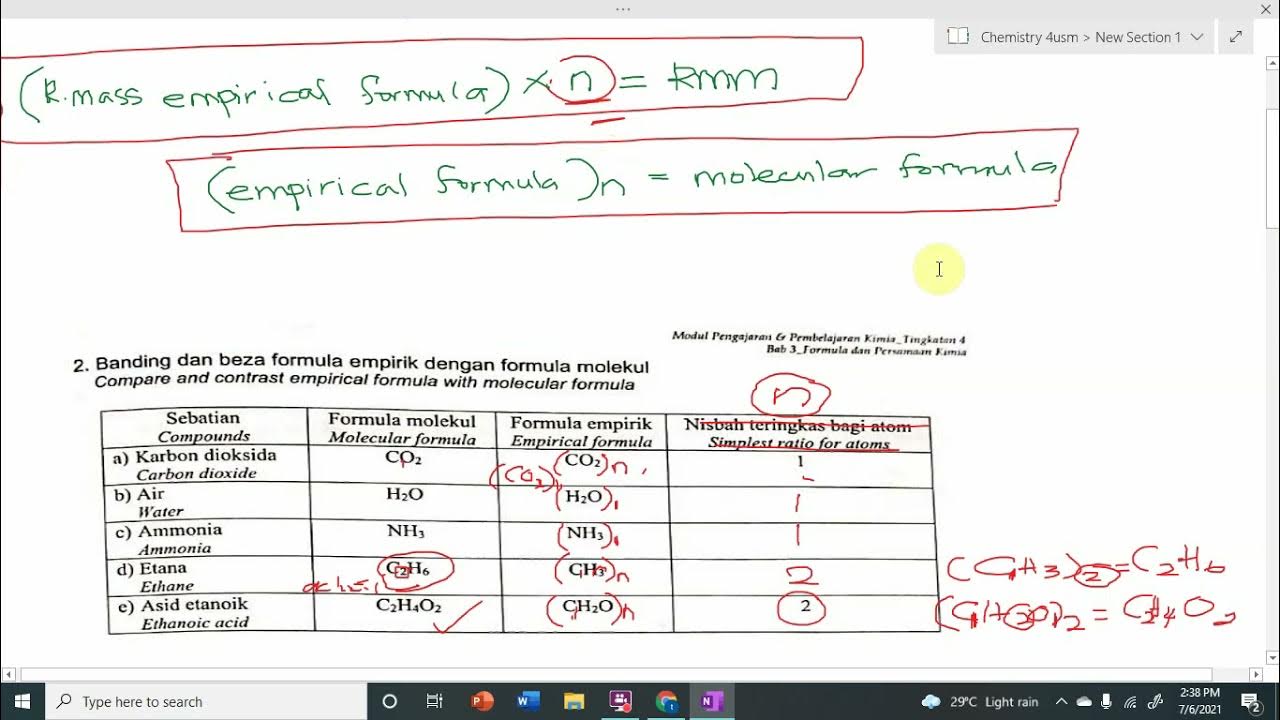 Chemistry 4usm > New Section 1
(R.mass empirical formula) × n = RMM
(empirical formula)n = molecular formula
Modul Pengajaran & Pembelajaran Kimia_Tingkatan 4
Bab 3_Formula dan Persamaan Kimia
2. Banding dan beza formula empirik dengan formula molekul
Compare and contrast empirical formula with molecular formula
n
Sebatian Formula molekul Formula empirik Nisbah teringkas bagi atom
Compounds Molecular formula Empirical formula Simplest ratio for atoms
a) Karbon dioksida CO₂ (CO₂)n 1
Carbon dioxide (CO₂)₁
b) Air H₂O (H₂O)₁ 1
Water
c) Ammonia NH₃ (NH₃)₁ 1
Ammonia
d) Etana C₂H₆ (CH₃)n 2 (C₁H₃)₂ = C₂H₆
Ethane
e) Asid etanoik C₂H₄O₂ (CH₂O)n 2 (C₁H₂O)₂ = C₂H₄O₂
Ethanoic acid
Type here to search
29°C Light rain
2:38 PM
7/6/2021
2